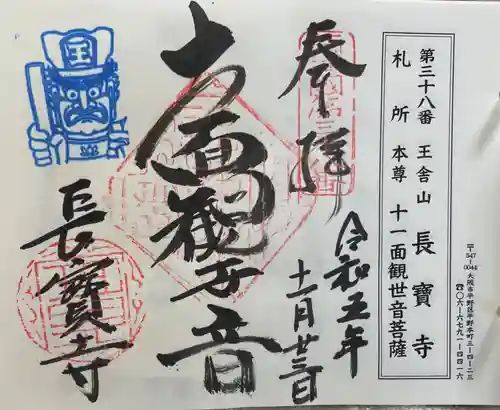 〒547-0044 大阪市平野区平野本町三-四-二三
☎〇六-六七九一-四四一六
第三十八番 王舎山 長寶寺
札所本尊 十一面観世音菩薩
奉拝
令和五年
十一月廿三日
十一面観世音
長寶寺